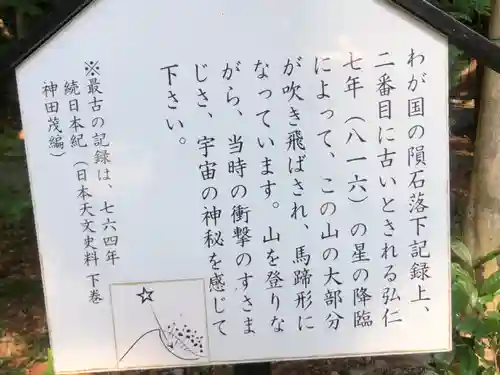 わが国の隕石落下記録上、
二番目に古いとされる弘仁
七年（八一六）の星の降臨
によって、この山の大部分
が吹き飛ばされ、馬蹄形に
なっています。山を登りな
がら、当時の衝撃のすさま
じさ、宇宙の神秘を感じて
下さい。
※最古の記録は、七六四年
続日本紀（日本天文史料 下巻
神田茂編）